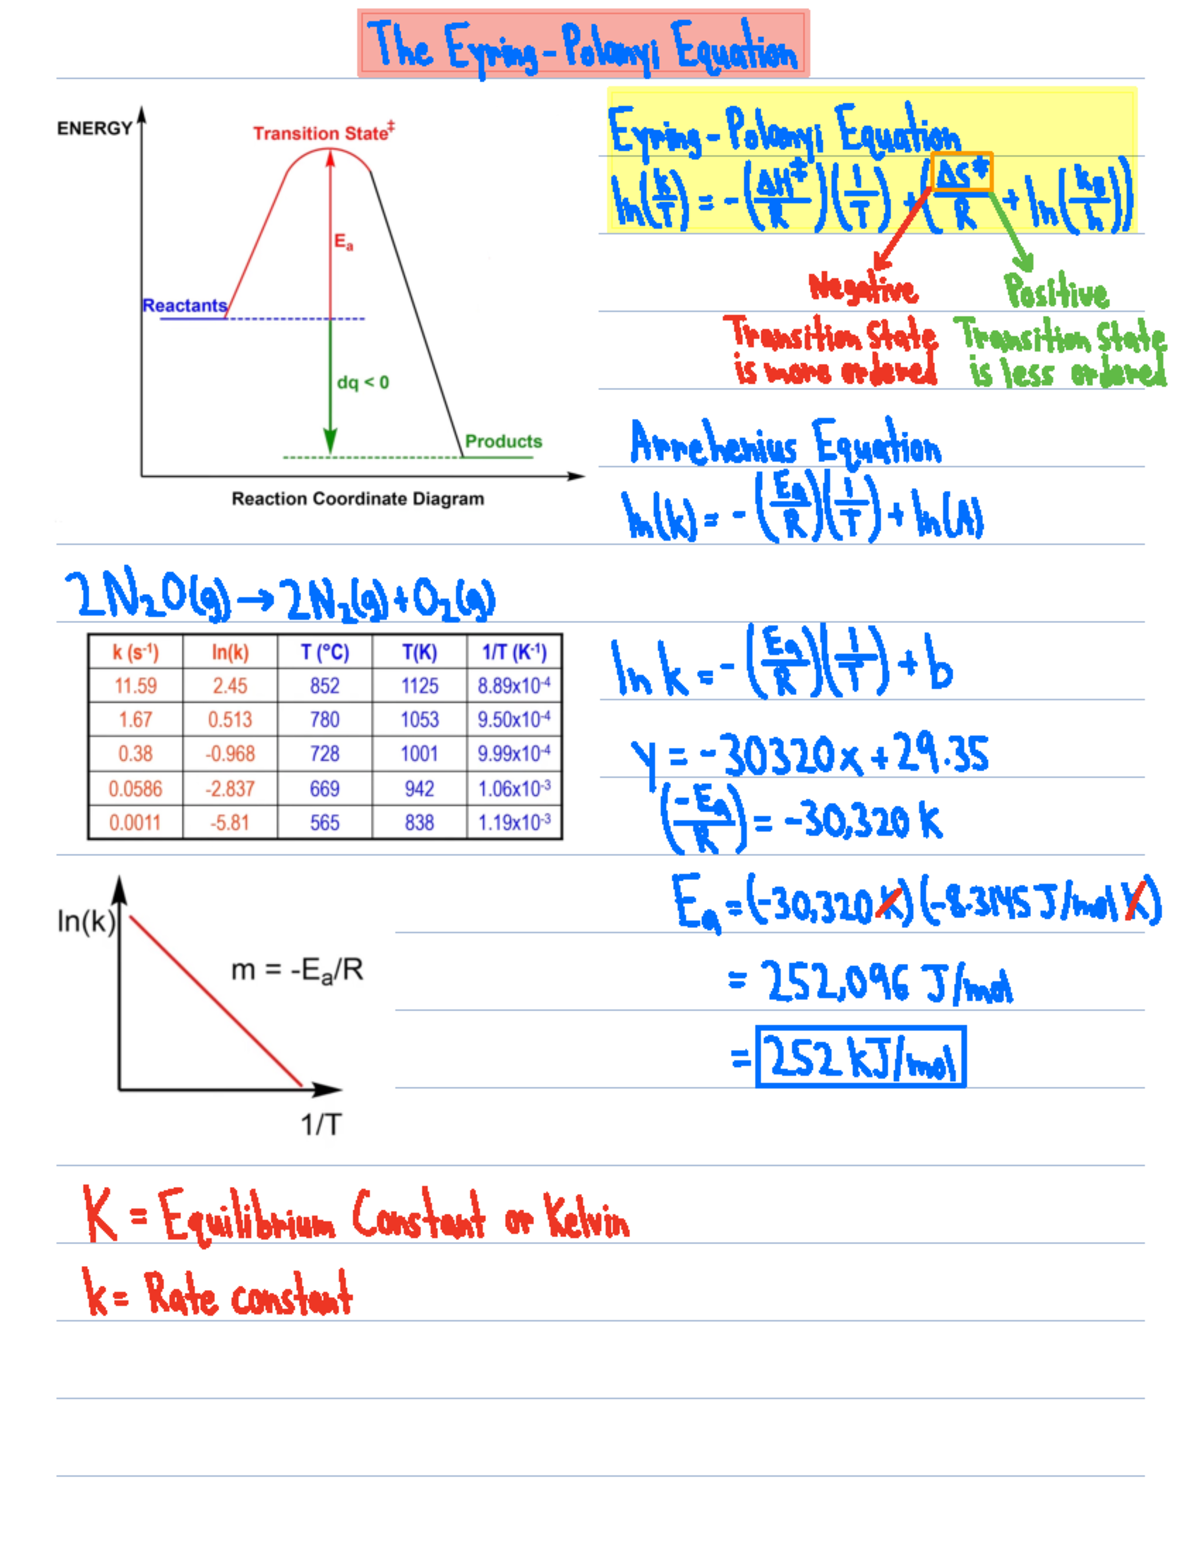 The Eyring-Polanyi Equation
ENERGY
Transition State‡
Ea
Reactants
dq < 0
Products
Reaction Coordinate Diagram
Eyring-Polanyi Equation
ln(k/T) = -(ΔH‡/R)(1/T) + (ΔS‡/R + ln(kB/h))
Negative
Transition State
is more ordered
Positive
Transition State
is less ordered
Arrehenius Equation
ln(k) = -(Ea/R)(1/T) + ln(A)
2N₂O(g) → 2N₂(g) + O₂(g)
k (s⁻¹) ln(k) T (°C) T(K) 1/T (K⁻¹)
11.59 2.45 852 1125 8.89x10⁻⁴
1.67 0.513 780 1053 9.50x10⁻⁴
0.38 -0.968 728 1001 9.99x10⁻⁴
0.0586 -2.837 669 942 1.06x10⁻³
0.0011 -5.81 565 838 1.19x10⁻³
ln k = -(Ea/R)(1/T) + b
y = -30320x + 29.35
(-Ea/R) = -30,320 K
Ea = (-30,320 K)(-8.3145 J/mol K)
= 252,096 J/mol
= 252 kJ/mol
ln(k)
m = -Ea/R
1/T
K = Equilibrium Constant or Kelvin
k = Rate constant